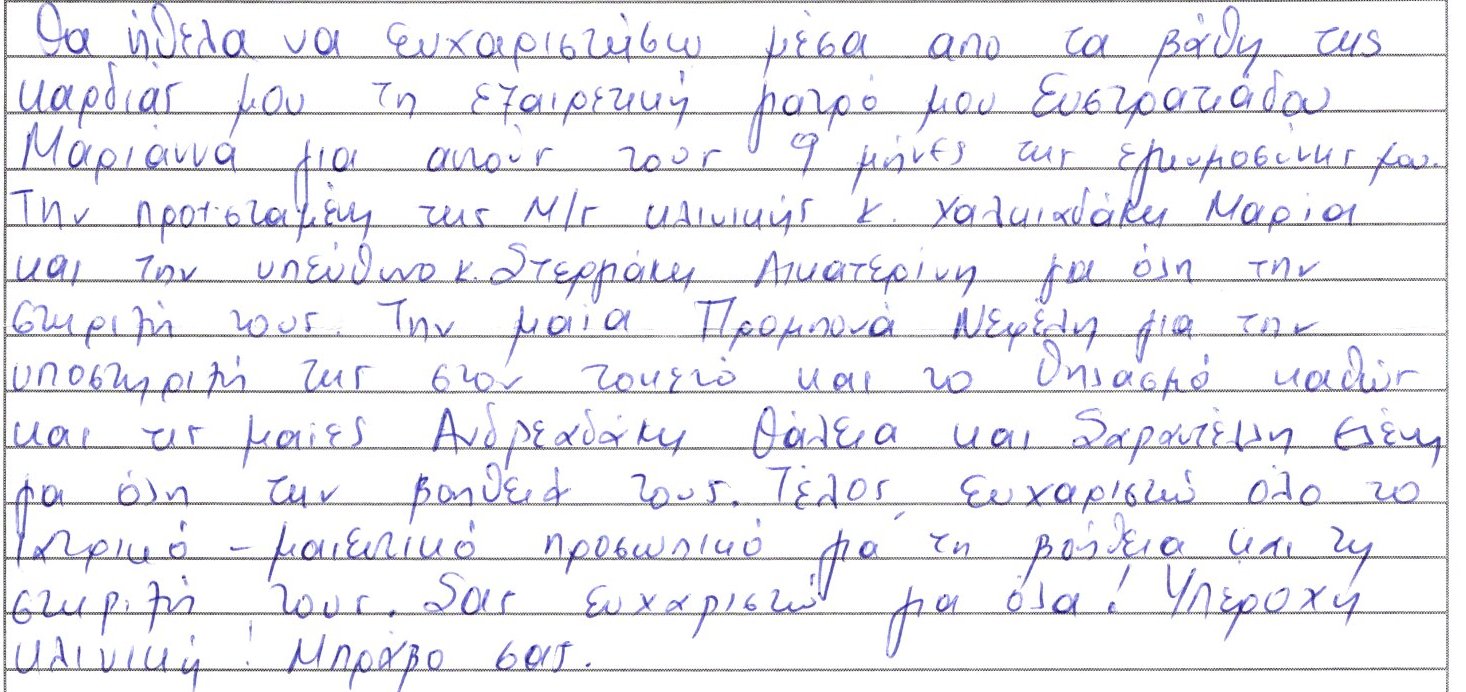 Θα ήθελα να ευχαριστήσω μέσα απο τα βάθη της
καρδιάς μου τη εξαιρετική γιατρό μου Ευστρατιάδου
Μαριάννα για αυτούς τους 9 μήνες της εγκυμοσύνης μου.
Την προϊσταμένη της Μ/Γ κλινικής κ. Χαλκιαδάκη Μαρία
και την υπεύθυνο κ. Στεργιάκη Αικατερίνη για όλη την
στήριξή τους. Την μαία Προμπονά Νεφέλη για την
υποστήριξή της στον τοκετό και το θηλασμό καθώς
και τις μαίες Ανδρεαδάκη Θάλεια και Σαραντέλη Ελένη
για όλη την βοήθειά τους. Τέλος, ευχαριστώ όλο το
Ιατρικό - μαιευτικό προσωπικό για τη βοήθεια και τη
στήριξή τους. Σας ευχαριστώ για όλα! Υπέροχη
κλινική! Μπράβο σας.